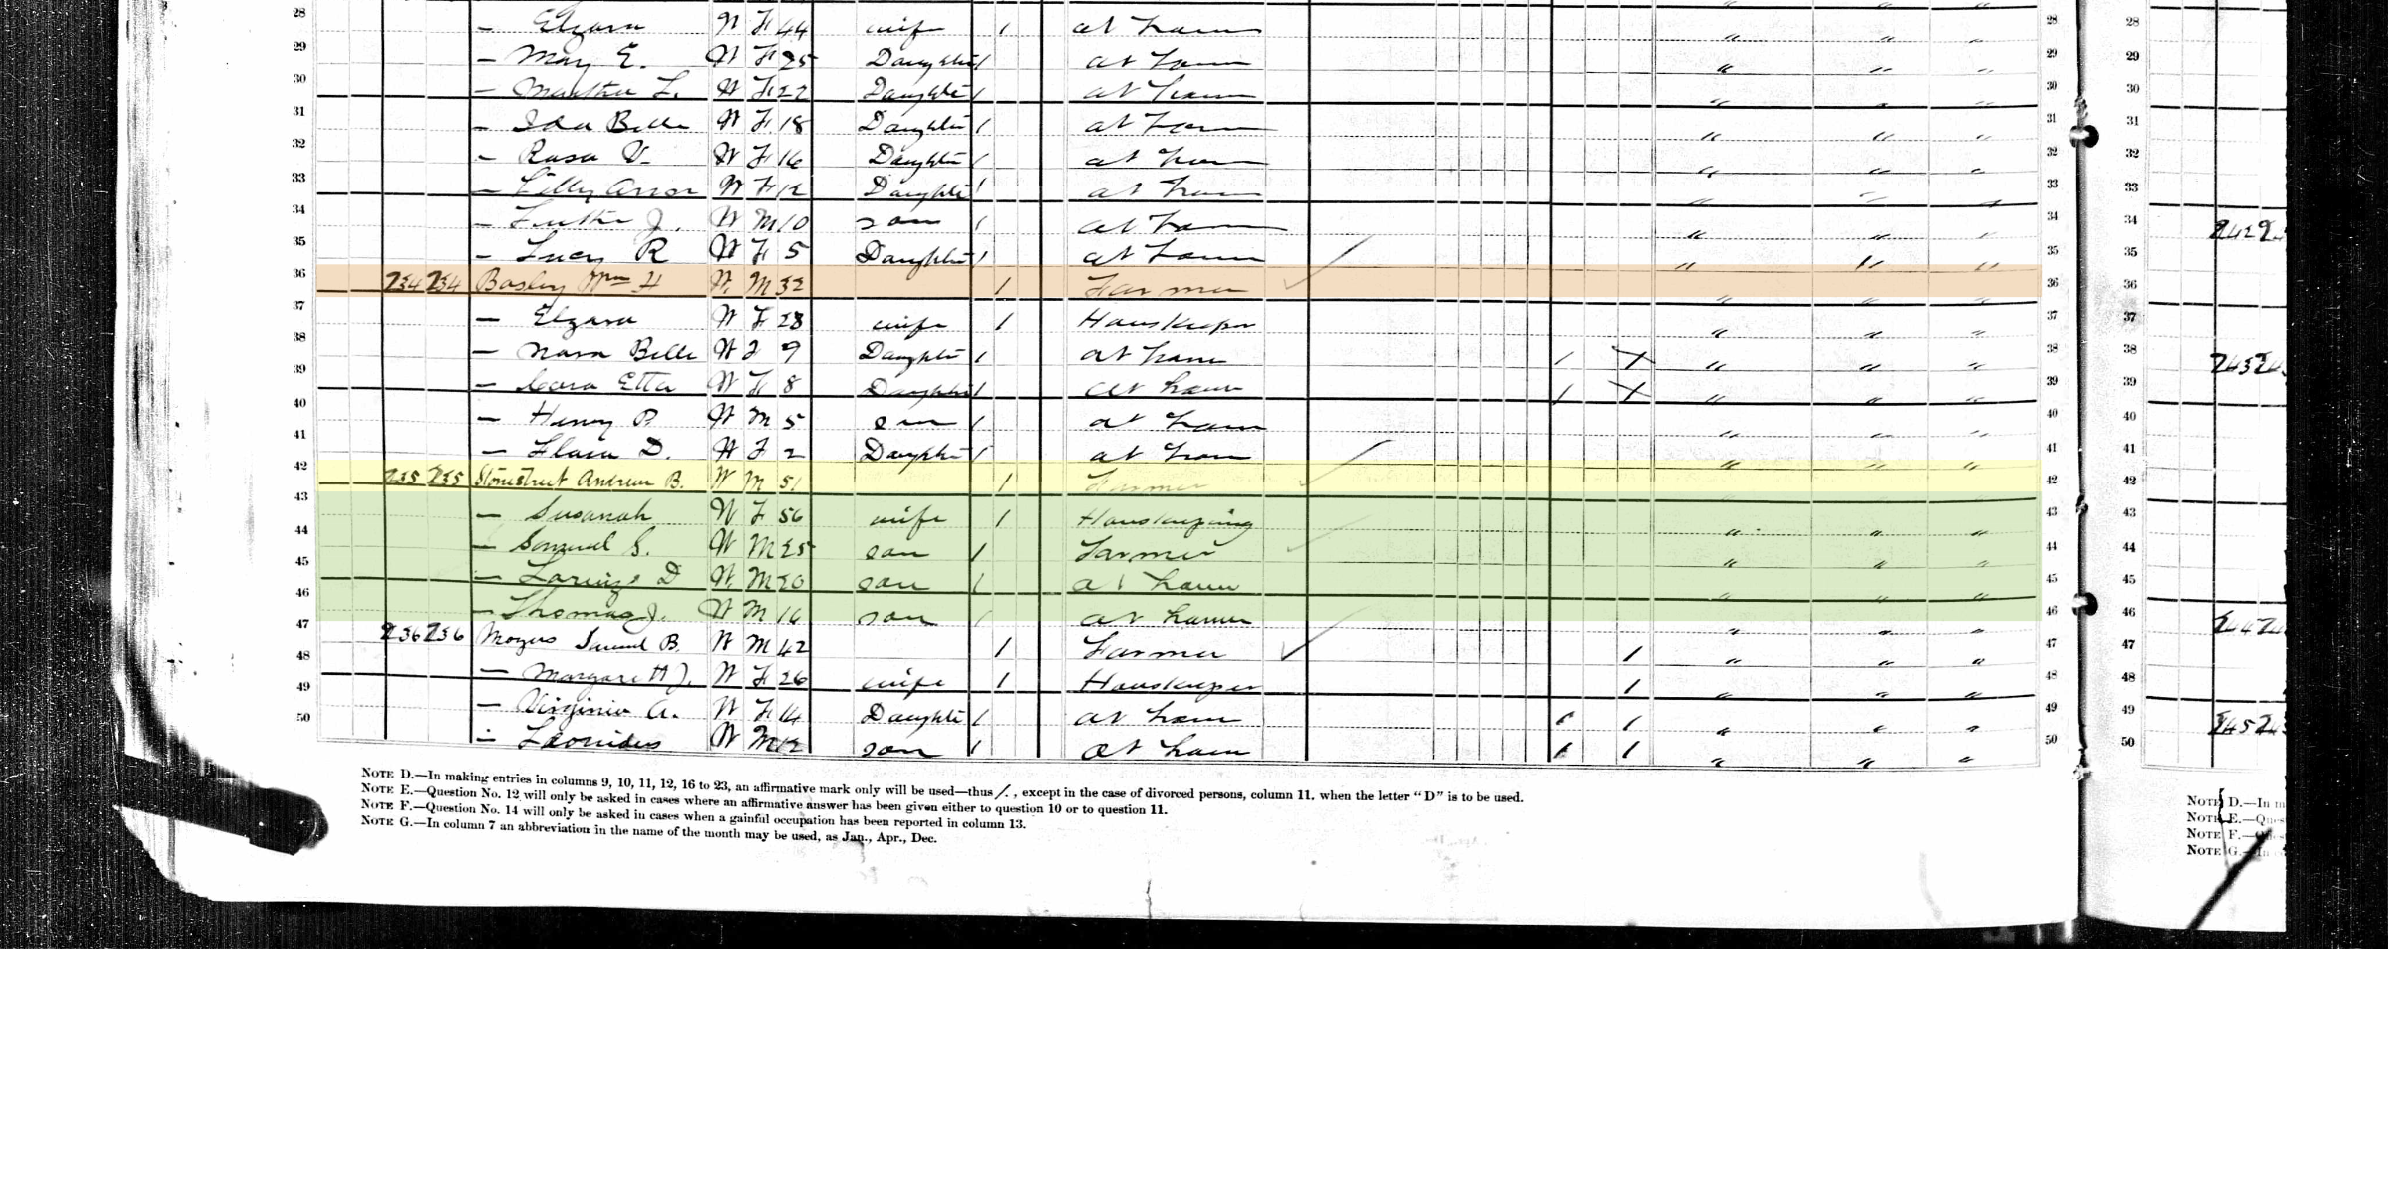 28 — Elzara W F 44 wife / at home " " " 28 28
29 — May E. W F 25 Daughter / at home " " " 29 29
30 — Martha L. W F 22 Daughter / at home " " " 30 30
31 — Ida Belle W F 18 Daughter / at home " " " 31 31
32 — Rosa V. W F 16 Daughter / at home " " " 32 32
33 — Lilly Ann W F 12 Daughter / at home " " " 33 33
34 — Luther J. W M 10 son / at home " " " 34 34
35 — Lucy R W F 5 Daughter / at home " " " 35 35
36 234 234 Wm H W M 32 / Farmer " " " 36 36
37 — Elzara W F 28 wife / " " " 37 37
38 — Nora Belle W F 9 Daughter / at home / X " " " 38 38
39 — Cora Etta W F 8 Daughter / at home / X " " " 39 39
40 — Henry P. W M 5 son / at home " " " 40 40
41 — Flora D. W F 2 Daughter / at home " " " 41 41
42 235 235 Stonestreet Andrew B. W M 51 / Farmer " " " 42 42
43 — Susanah W F 56 wife / Houskeeping " " " 43 43
44 — Samuel S. W M 25 son / Farmer " " " 44 44
45 — Lorenzo D W M 20 son / at home " " " 45 45
46 — Thomas J. W M 16 son / at home " " " 46 46
47 236 236 B. W M 42 / Farmer / " " " 47 47
48 — Margaret J. W F 26 wife / Houskeeper / " " " 48 48
49 — Virginia A. W F 14 Daughter / at home / / " " " 49 49
50 — Leonidas W M 12 son / at home / / " " " 50 50
NOTE D.—In making entries in columns 9, 10, 11, 12, 16 to 23, an affirmative mark only will be used—thus /. , except in the case of divorced persons, column 11. when the letter “D” is to be used.
NOTE E.—Question No. 12 will only be asked in cases where an affirmative answer has been given either to question 10 or to question 11.
NOTE F.—Question No. 14 will only be asked in cases when a gainful occupation has been reported in column 13.
NOTE G.—In column 7 an abbreviation in the name of the month may be used, as Jan., Apr., Dec.
NOTE D.—In
NOTE E.—Ques
NOTE F.—
NOTE G.—In